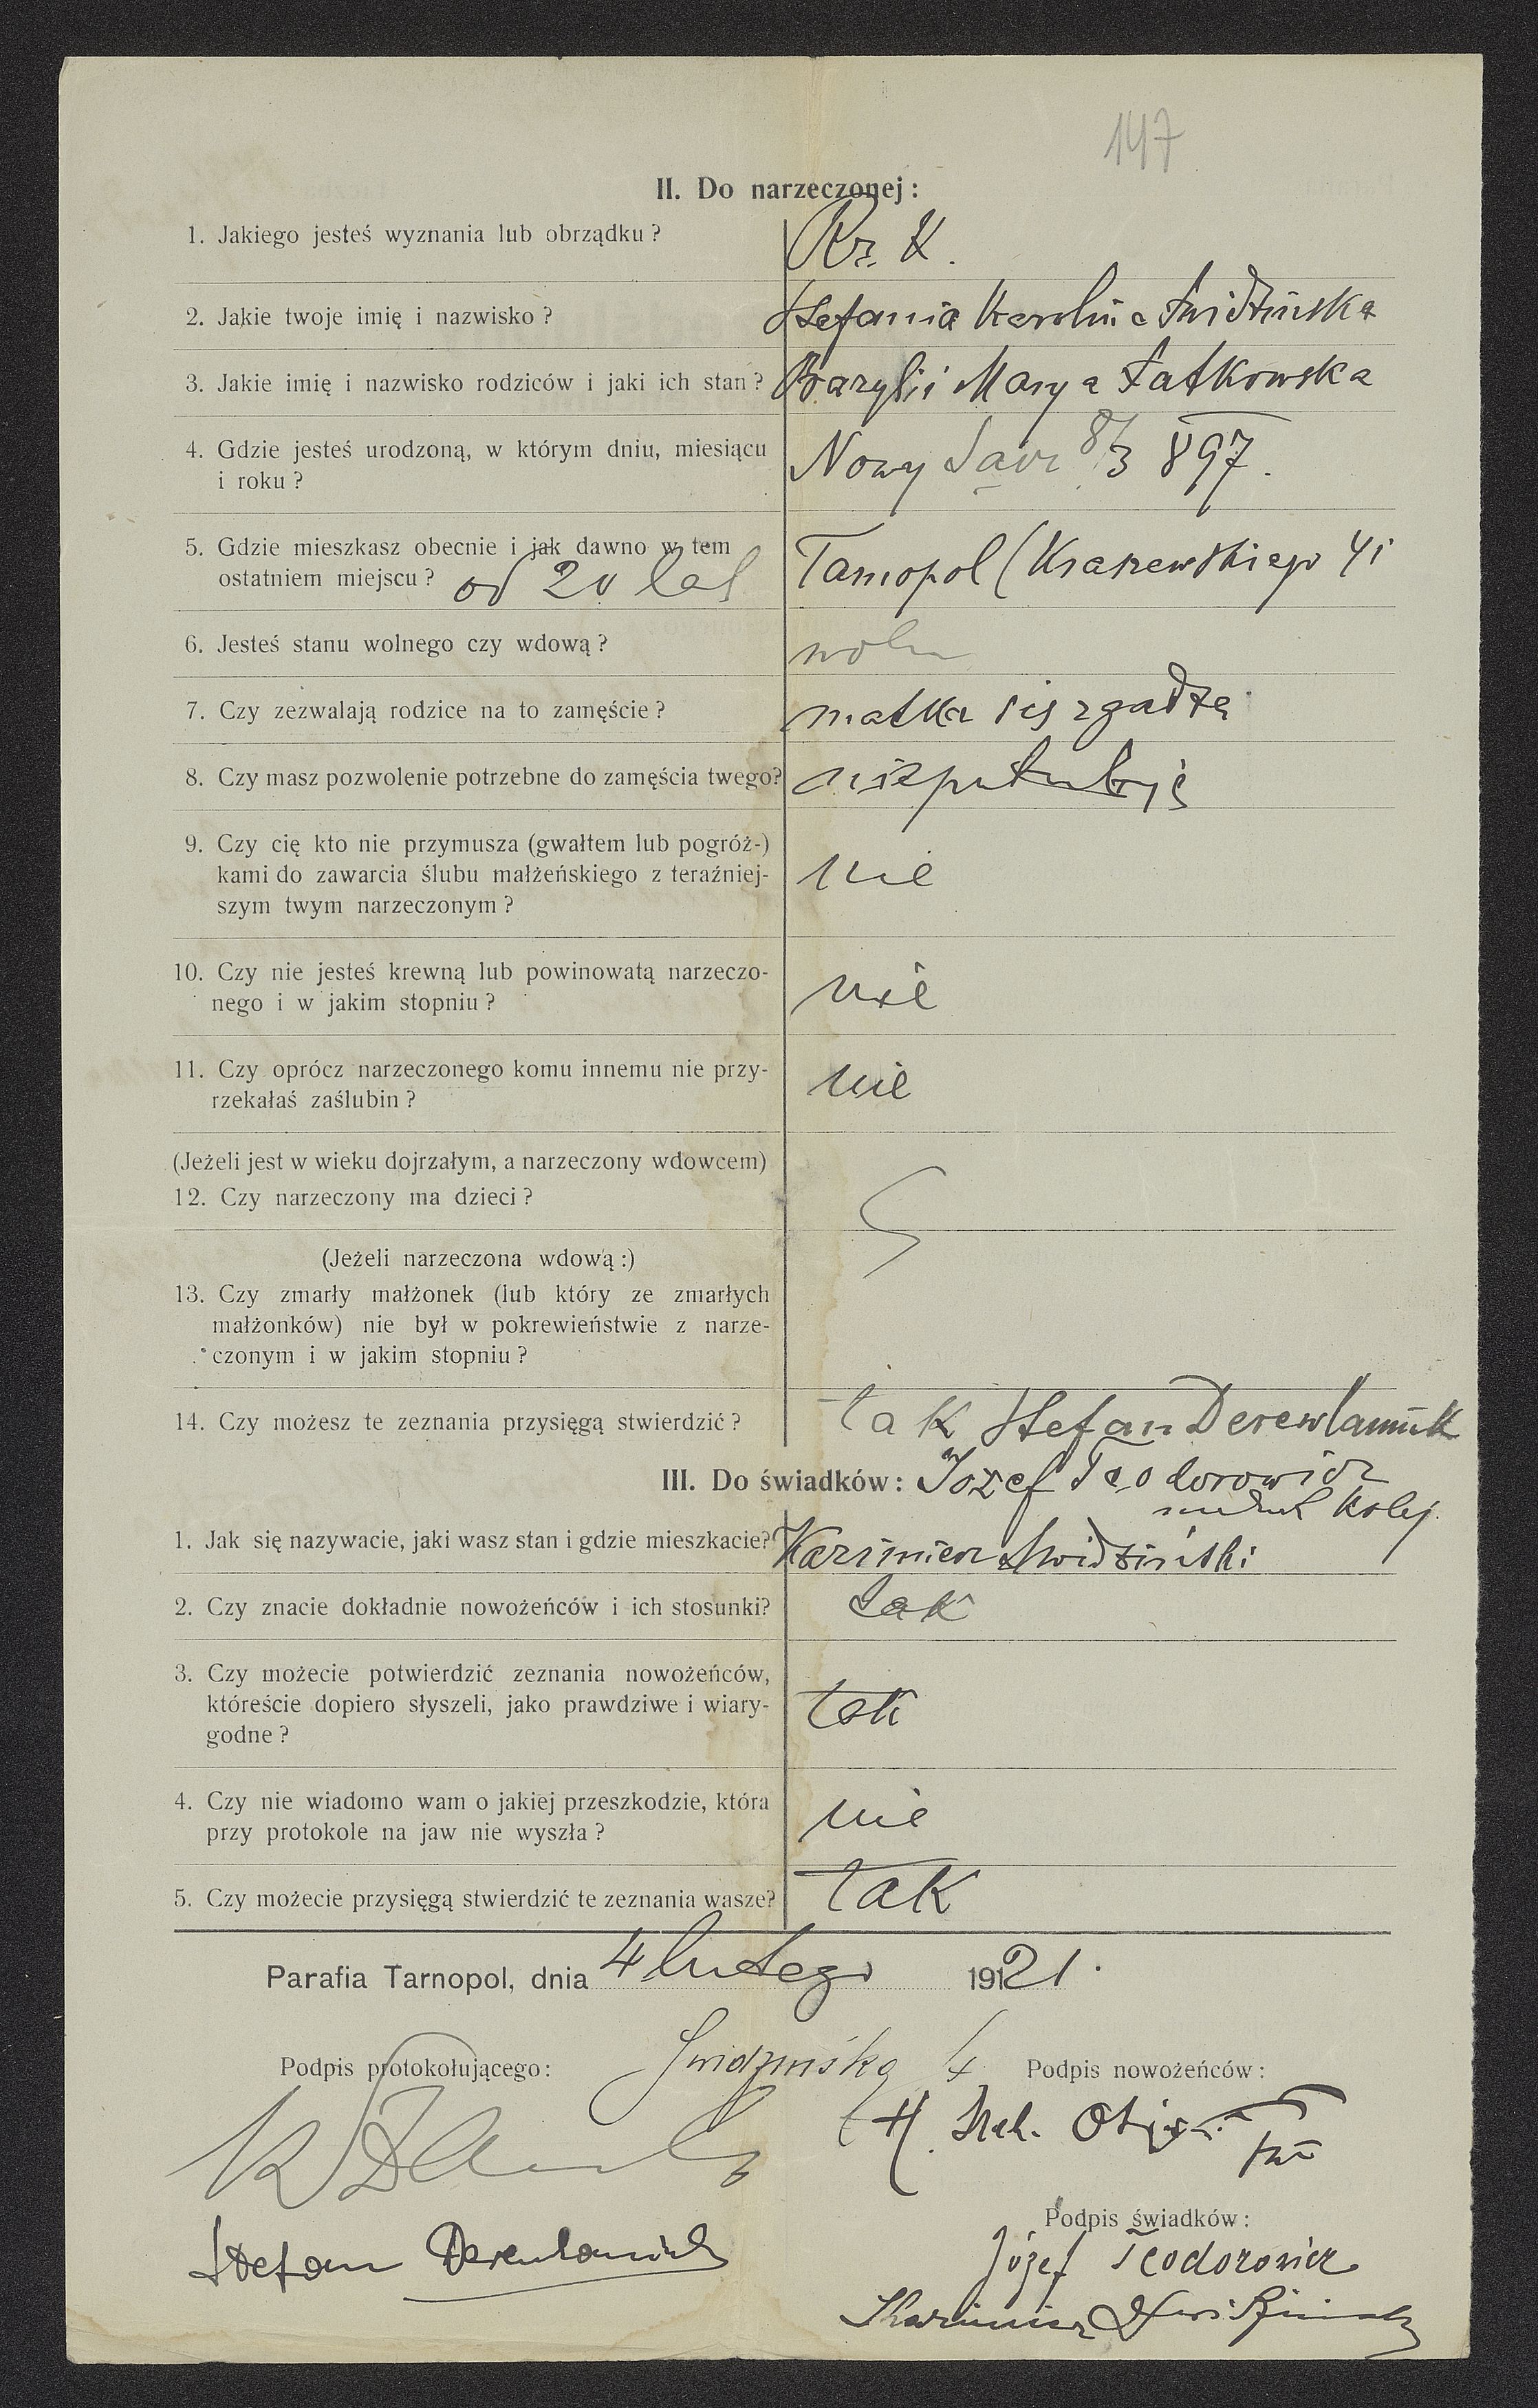 147
II. Do narzeczonej:
1. Jakiego jesteś wyznania lub obrządku?
Rz. K.
2. Jakie twoje imię i nazwisko?
Stefania Karolina Świdzińska
3. Jakie imię i nazwisko rodziców i jaki ich stan?
Bazyli i Marya Łatkowska
4. Gdzie jesteś urodzoną, w którym dniu, miesiącu
i roku?
Nowy 8/3 897.
5. Gdzie mieszkasz obecnie i jak dawno w tem
ostatniem miejscu? od 20 lat
Tarnopol (Kraszewskiego 41
6. Jesteś stanu wolnego czy wdową?
woln
7. Czy zezwalają rodzice na to zamęście?
matka się zgadza
8. Czy masz pozwolenie potrzebne do zamęścia twego?
9. Czy cię kto nie przymusza (gwałtem lub pogróż-)
kami do zawarcia ślubu małżeńskiego z teraźniej-
szym twym narzeczonym?
nie
10. Czy nie jesteś krewną lub powinowatą narzeczo-
nego i w jakim stopniu?
nie
11. Czy oprócz narzeczonego komu innemu nie przy-
rzekałaś zaślubin?
nie
(Jeżeli jest w wieku dojrzałym, a narzeczony wdowcem)
12. Czy narzeczony ma dzieci?
(Jeżeli narzeczona wdową:)
13. Czy zmarły małżonek (lub który ze zmarłych
małżonków) nie był w pokrewieństwie z narze-
czonym i w jakim stopniu?
14. Czy możesz te zeznania przysięgą stwierdzić?
tak Stefan Derewlaniuk
III. Do świadków: Józef Teodorowicz
kolej.
1. Jak się nazywacie, jaki wasz stan i gdzie mieszkacie?
Kazimierz Świdziński
2. Czy znacie dokładnie nowożeńców i ich stosunki?
tak
3. Czy możecie potwierdzić zeznania nowożeńców,
któreście dopiero słyszeli, jako prawdziwe i wiary-
godne?
tak
4. Czy nie wiadomo wam o jakiej przeszkodzie, która
przy protokole na jaw nie wyszła?
nie
5. Czy możecie przysięgą stwierdzić te zeznania wasze?
tak
Parafia Tarnopol, dnia 4 lutego 19121.
Podpis protokołującego:
Świdzińska
Podpis nowożeńców:
Stefan Derewlaniuk
Podpis świadków:
Józef Teodorowicz
Kazimierz Świdziński